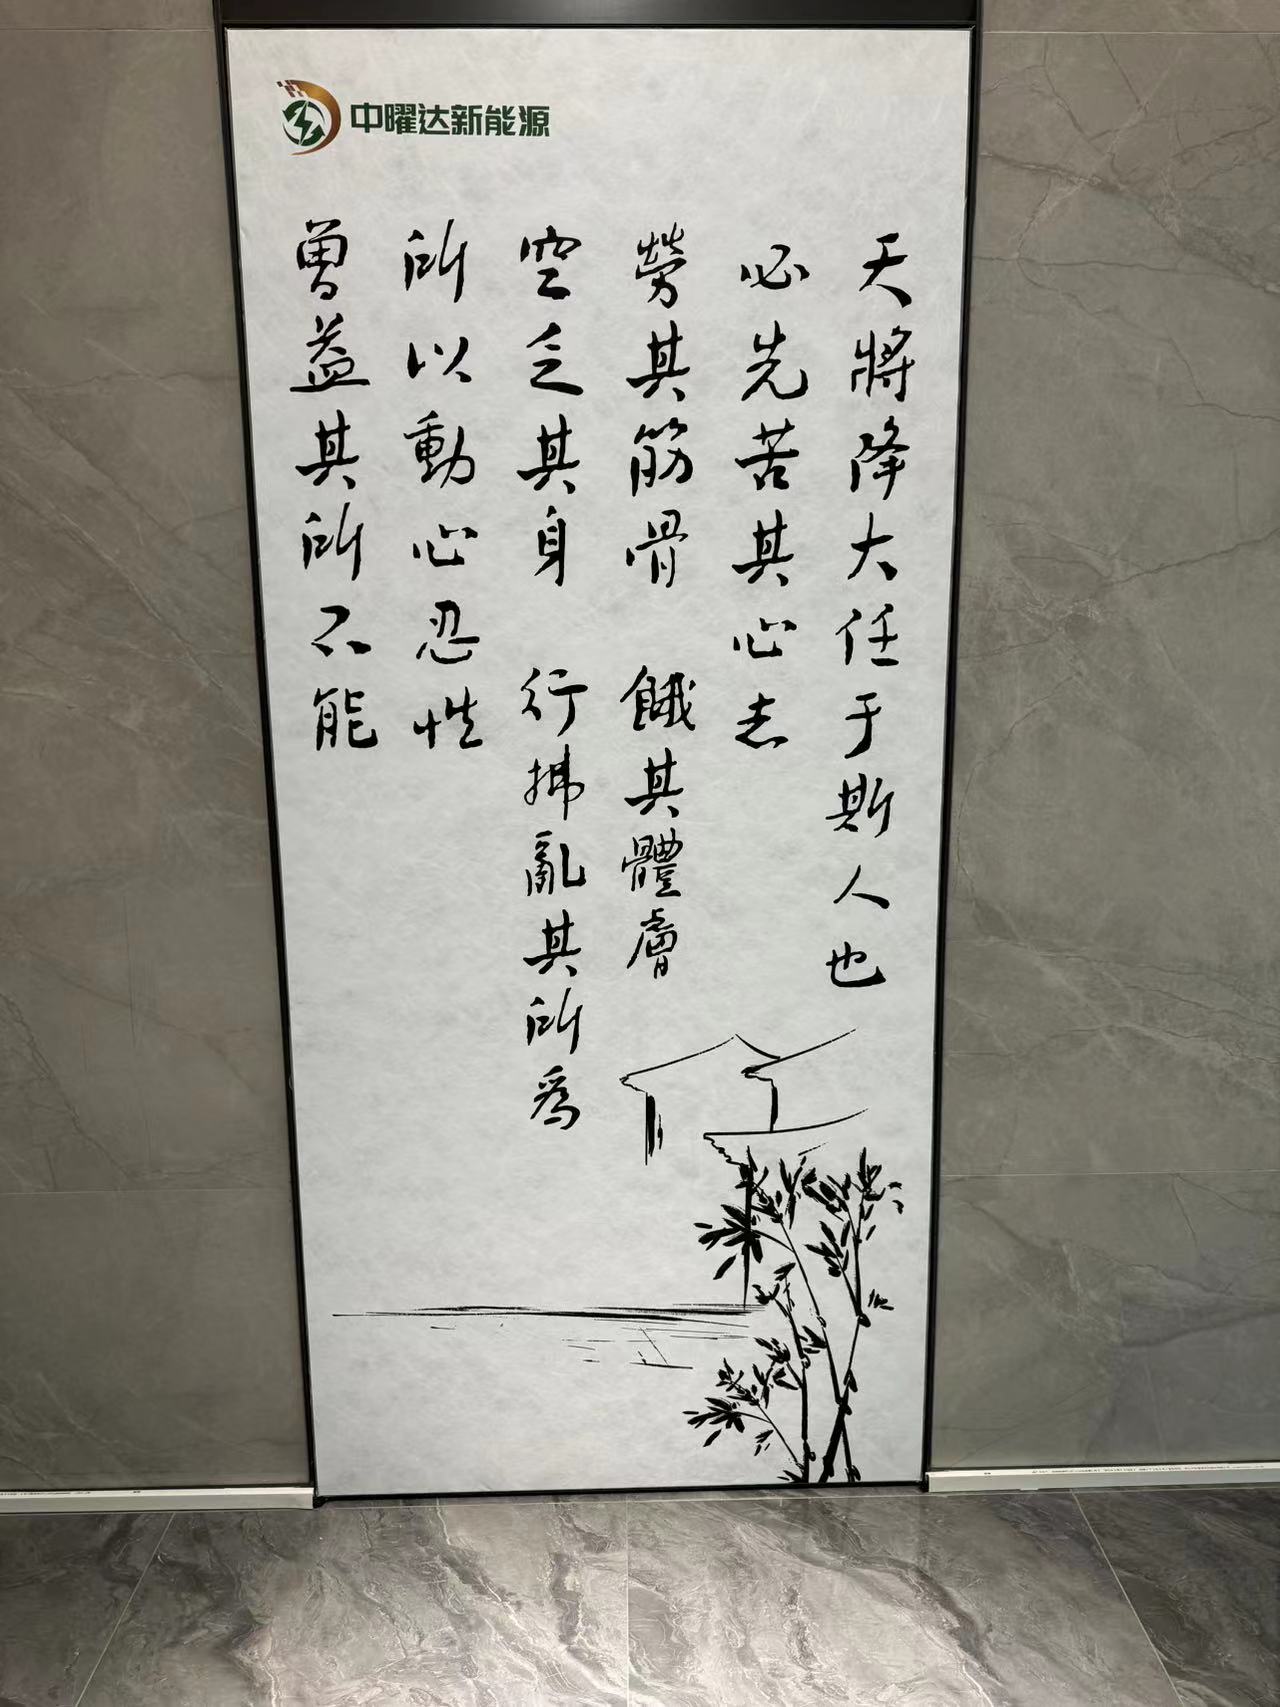 中曜达新能源
天將降大任于斯人也
必先苦其心志
勞其筋骨 餓其體膚
空乏其身 行拂亂其所為
所以動心忍性
曾益其所不能